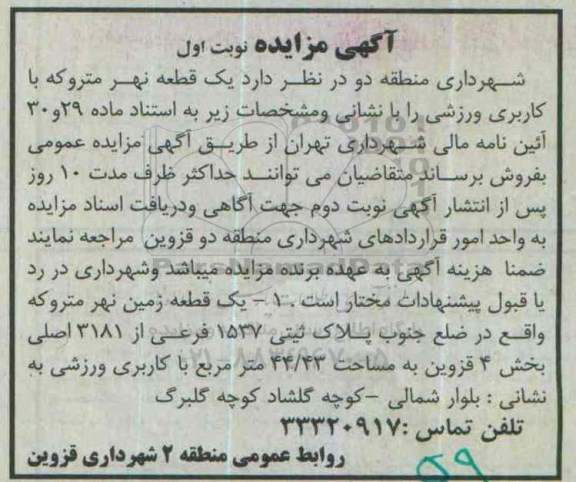 آگهی مزایده نوبت اول
شهرداری منطقه دو در نظر دارد یک قطعه نهر متروکه با
کاربری ورزشی را با نشانی ومشخصات زیر به استناد ماده ۲۹و۳۰
آئین نامه مالی شهرداری تهران از طریق آگهی مزایده عمومی
بفروش برساند متقاضیان می توانند حداکثر ظرف مدت ۱۰ روز
پس از انتشار آگهی نوبت دوم جهت آگاهی ودریافت اسناد مزایده
به واحد امور قراردادهای شهرداری منطقه دو قزوین مراجعه نمایند
ضمنا هزینه آگهی به عهده برنده مزایده میباشد وشهرداری در رد
یا قبول پیشنهادات مختار است . ۱ – یک قطعه زمین نهر متروکه
واقع در ضلع جنوب پلاک ثبتی ۱۵۳۷ فرعی از ۳۱۸۱ اصلی
بخش ۴ قزوین به مساحت ۴۴/۴۳ متر مربع با کاربری ورزشی به
نشانی : بلوار شمالی –کوچه گلشاد کوچه گلبرگ
تلفن تماس :۳۳۳۲۰۹۱۷
روابط عمومی منطقه ۲ شهرداری قزوین
۵۹